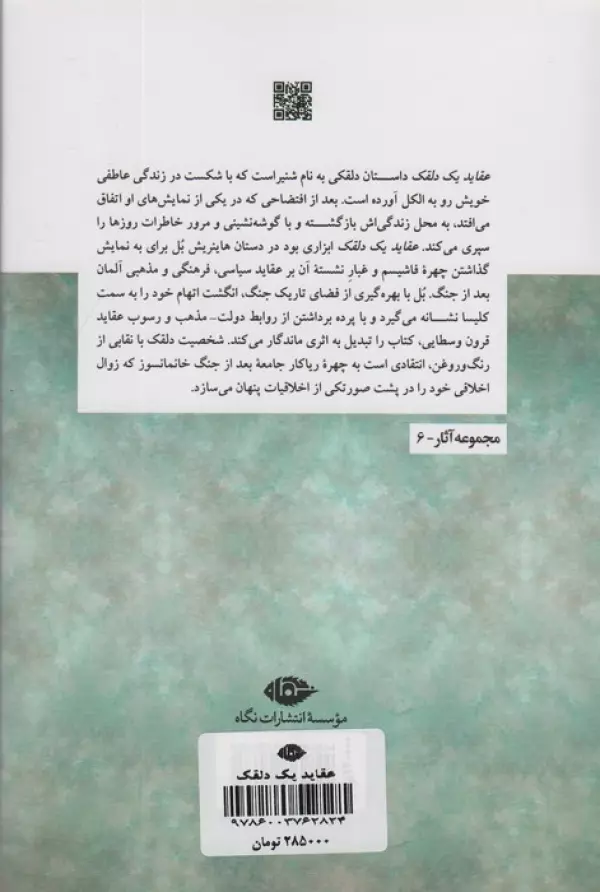 عقاید یک دلقک داستان دلقکی به نام شنیراست که با شکست در زندگی عاطفی
خویش رو به الکل آورده است. بعد از افتضاحی که در یکی از نمایش‌های او اتفاق
می‌افتد، به محل زندگی‌اش بازگشته و با گوشه‌نشینی و مرور خاطرات روزها را
سپری می‌کند. عقاید یک دلقک ابزاری بود در دستان هاینریش بُل برای به نمایش
گذاشتن چهرهٔ فاشیسم و غبارِ نشستهٔ آن بر عقاید سیاسی، فرهنگی و مذهبی آلمان
بعد از جنگ. بُل با بهره‌گیری از فضای تاریک جنگ، انگشت اتهام خود را به سمت
کلیسا نشانه می‌گیرد و با پرده برداشتن از روابط دولت-مذهب و رسوب عقاید
قرون وسطایی، کتاب را تبدیل به اثری ماندگار می‌کند. شخصیت دلقک با نقابی از
رنگ‌وروغن، انتقادی است به چهرهٔ ریاکار جامعهٔ بعد از جنگ خانمانسوز که زوال
اخلاقی خود را در پشت صورتکی از اخلاقیات پنهان می‌سازد.
مجموعه آثار-۶
مؤسسهٔ انتشارات نگاه
عقاید یک دلقک
۹۷۸۶۰۰۳۷۶۲۸۲۴
۲۸۵۰۰۰ تومان